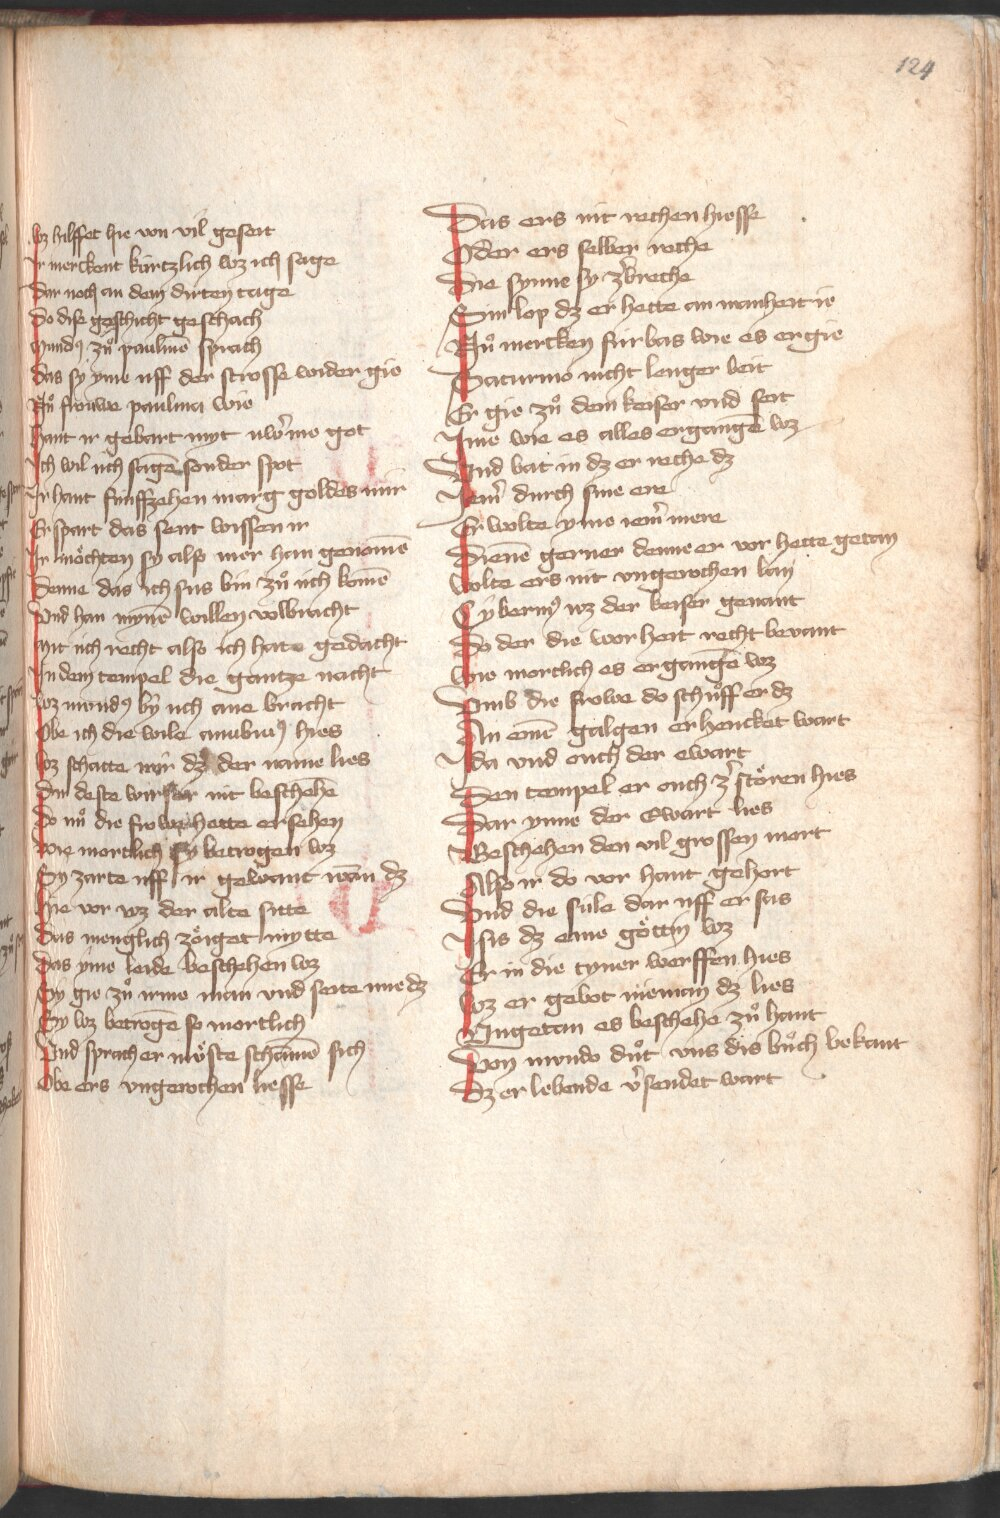 124
Wz hilffet hie von vil geseit
Ir merckent kürtzlich wz ich sage
Dar noch an dem dirten tage
Do dise geschicht geschach
Mundꝰ zů pauline sprach
Das sy yme uff der strosse wider gie
Nů frouwe paulina wie
Hant ir gebart myt uwerme got
Ich wil uch sagē sonder spot
Ir hant fünffzehen marg goldes mir
Erspart das sent wissen ir
Ir möchten sy also mer han genomē
Denne das ich sus bin zů uch komē
Vnd han mynē willen volbracht
Mit uch recht also ich hate gedacht
In dem tempel die gantze nacht
Wz mundꝰ by uch ane bracht
Obe ich die wile anubiuꝰ hies
Wz schatte mir dz der name lies
Din deste wirser nit beschehē
Do nů die frowe hette ersehen
Wie mortlich sy betrogen wz
Sy zarte uff ir gewant wān dz
Hie vor wz der alte sitte
Das menglich zöiget mytte
Das yme leide beschehen wz
Sy gie zů irme man vnd seite ime dz
Sy wz betrogē so mortlich
Vnd sprach er müste schamē sich
Obe ers vngerochen liesse
Das ers nit rechen hiesse
Oder ers selber reche
Die synne sy zʼbreche
Sin lop dz er hette an manheit ie
Nů mercken fürbas wie es ergie
Saturnio nicht lenger beit
Er gie zů dem keiser vnd seit
Ime wie es alles ergangē wz
Vnd bat in dz er reche dz
Iemʼ durch sine ere
Er wolte yme iemʼ mere
Dienē gerner denne er vor hette getan
Wolte ers nit vngerochen lan
Tyberiuꝰ wz der keiser genant
Do der die worheit recht bevant
Wie mortlich es ergangē wz
Vmb die frowe do schůff er dz
An einē galgen erhencket wart
Ida vnd ouch der ewart
Den tempel er ouch zʼstören hies
Dar ynne der Ewart lies
Beschehen den vil grossen mort
Also ir do vor hant gehort
Vnd die sule dar uff er sas
Isis dz eine göttin wz
Er in die tyuer werffen hies
Wz er gebot nieman dz lies
Vngetan es beschehe zů hant
Von mundo důt vns dis bůch bekant
Dz er lebende vʼsendet wart